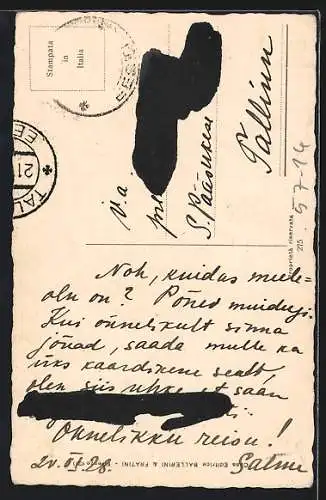 Noh, kuidas meele-
olu on? Põnev muidugi.
Kui õnnelikult sinna
jõuad, saada mulle ka
üks kaardikene sealt,
olen siis uhke et saan
Õnnelikku reisu!
20.VI.28. Salme
Stampata
in
Italia
v.a.
prl.
S. Pääsukene
Tallinn
57-14
Proprietà riservata
215
Casa Editrice BALLERINI & FRATINI
TAL
EE
21